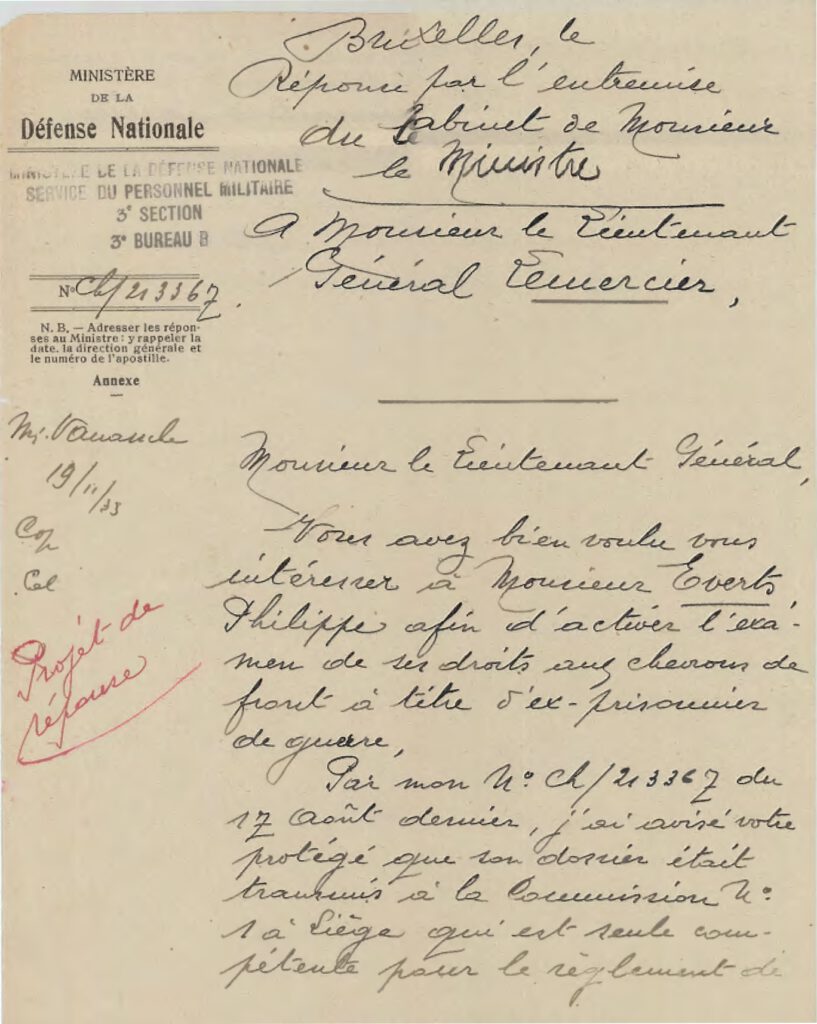 MINISTÈRE
DE LA
Défense Nationale
MINISTERE DE LA DÉFENSE NATIONALE
SERVICE DU PERSONNEL MILITAIRE
3e SECTION
3e BUREAU B
No Ch/213367
N. B. — Adresser les répon-
ses au Ministre : y rappeler la
date, la direction générale et
le numéro de l'apostille.
Annexe
19/11/33
Cel
Projet de
réponse
Bruxelles, le
Réponse par l'entremise
du Cabinet de Monsieur
le Ministre
A Monsieur le Lieutenant
Général Lemercier,
Monsieur le Lieutenant Général,
Vous avez bien voulu vous
intéresser à Monsieur Everts
Philippe afin d'activer l'exa-
men de ses droits aux chevrons de
front à titre d'ex-prisonnier
de guerre,
Par mon No Ch/213367 du
17 Août dernier, j'ai avisé votre
protégé que son dossier était
transmis à la Commission No
1 à Liège qui est seule com-
pétente pour le règlement de